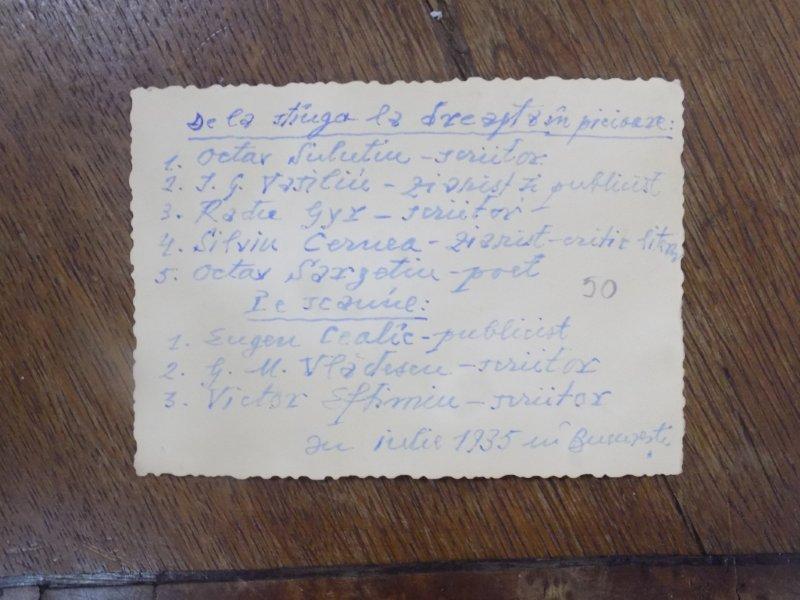 De la stînga la dreapta în picioare:
1. Octav Șuluțiu - scriitor
2. I. G. Vasiliu - ziarist și publicist
3. Radu Gyr - scriitor
4. Silviu Cernea - ziarist - critic
5. Octav Sargețiu - poet
50
Pe scaune:
1. Eugen - publicist
2. G. M. Vlădescu - scriitor
3. Victor Eftimiu - scriitor
iulie 1935 în București